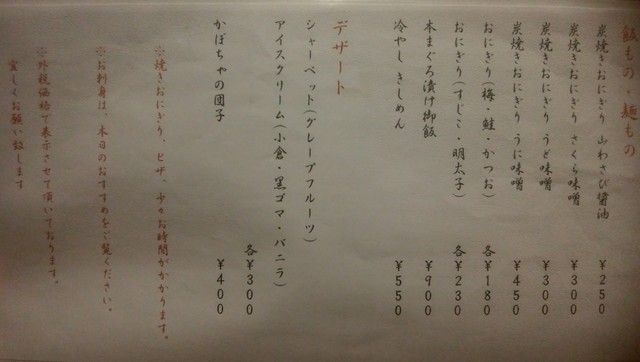 飯もの・麺もの
炭焼きおにぎり 山わさび醤油 ￥250
炭焼きおにぎり さくら味噌 ￥300
炭焼きおにぎり うど味噌 ￥300
炭焼きおにぎり うに味噌 ￥450
おにぎり(梅・鮭・かつお) 各￥180
おにぎり(すじこ・明太子) 各￥230
本まぐろ漬け御飯 ￥900
冷やしきしめん ￥550
デザート
シャーベット(グレープフルーツ)
アイスクリーム(小倉・黒ゴマ・バニラ) 各￥300
かぼちゃの団子 ￥400
※焼きおにぎり、ピザ、少々お時間がかかります。
※お刺身は、本日のおすすめをご覧ください。
※外税価格で表示させて頂いております。
宜しくお願い致します